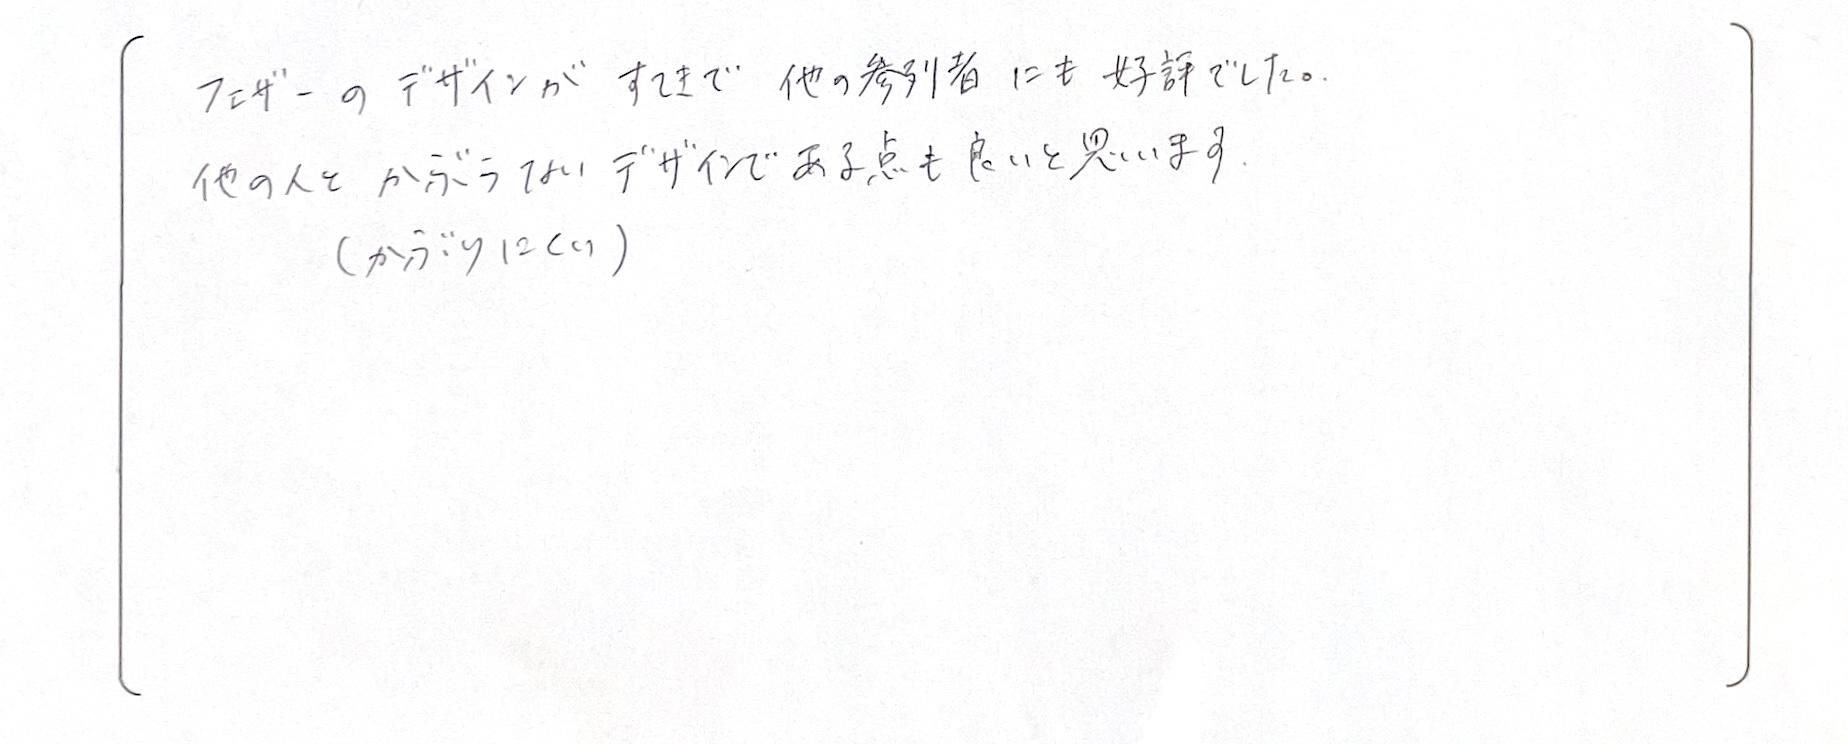 フェザーのデザインがすてきで 他の参列者にも好評でした。
他の人とかぶらないデザインである点も良いと思います。
(かぶりにくい)